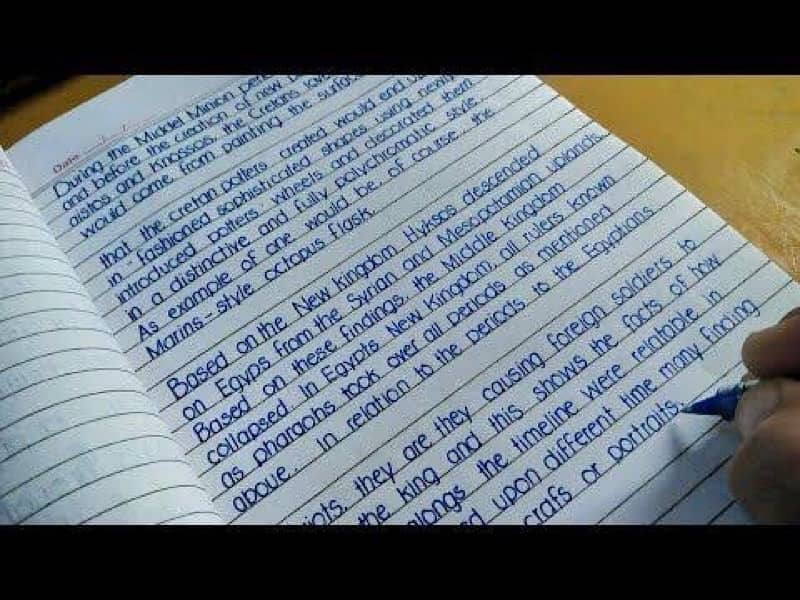 Date
During the Middel Minion peri
and before the creation of new
aistos and Knossos, the Cretans
would come from painting the surfac
that the cretan potters created would end
in "fashioned sophisticated shapes using newly
introduced potters' wheels and decorated them
in a distinctive and fully polychromatic style.
As example of one would be, of course.. the
Marins-style octopus flask.
Based on the New Kingdom Hyksos descended
on Egyps from the Syrian and Mesopotamian uplands
Based on these findings, the Middle Kingdom
collapsed. In Egypts New Kingdom, all rulers known
as pharaohs took over all periods as mentioned
above.. In relation to the periods to the Egyptians
iots, they are they causing foreign soldiers to
the king and this shows the facts of how
alongs the timeline were relatable in
ed upon different time many finding
crafs or portraits.